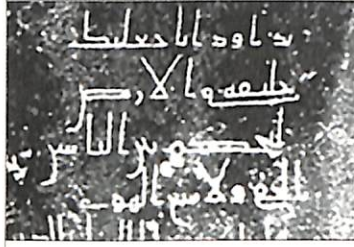 يداود انا جعلنك
خليفه في الارض
فاحكم بين الناس
بالحق ولا تتبع الهوى